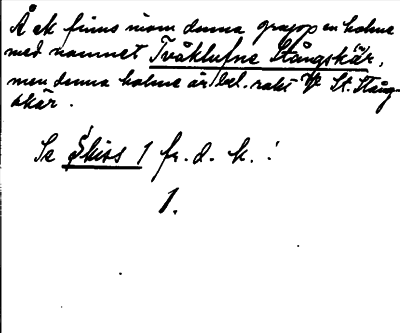 Å ek finns inom denna grupp en holme
med namnet Tvåklufne Stångskär,
men denna holme är bel. rakt V St. Stång-
skär.
Se Skiss 1 fr. d. k. :
1.